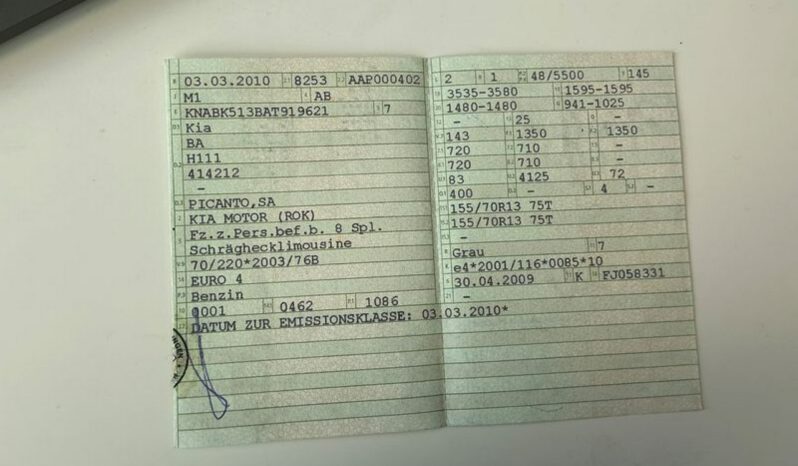 03.03.2010 8253 AAP000402
M1 AB
KNABK513BAT919621 7
Kia
BA
H111
414212
–
PICANTO,SA
KIA MOTOR (ROK)
Fz.z.Pers.bef.b. 8 Spl.
Schräghecklimousine
70/220*2003/76B
EURO 4
Benzin
0001 0462 1086
DATUM ZUR EMISSIONSKLASSE: 03.03.2010*
2 1 48/5500 145
3535-3580 1595-1595
1480-1480 941-1025
– 25 –
143 1350 1350
720 710 –
720 710 –
83 4125 72
400 – 4 –
155/70R13 75T
155/70R13 75T
–
Grau 7
e4*2001/116*0085*10
30.04.2009 K FJ058331
–